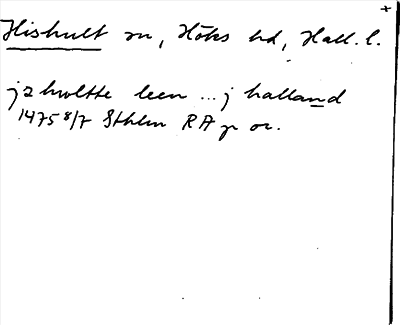 Hishult sn, Höks hd, Hall. l.
j z hwltte leen ... j halland
1475 8/7 Sthlm RA p or.